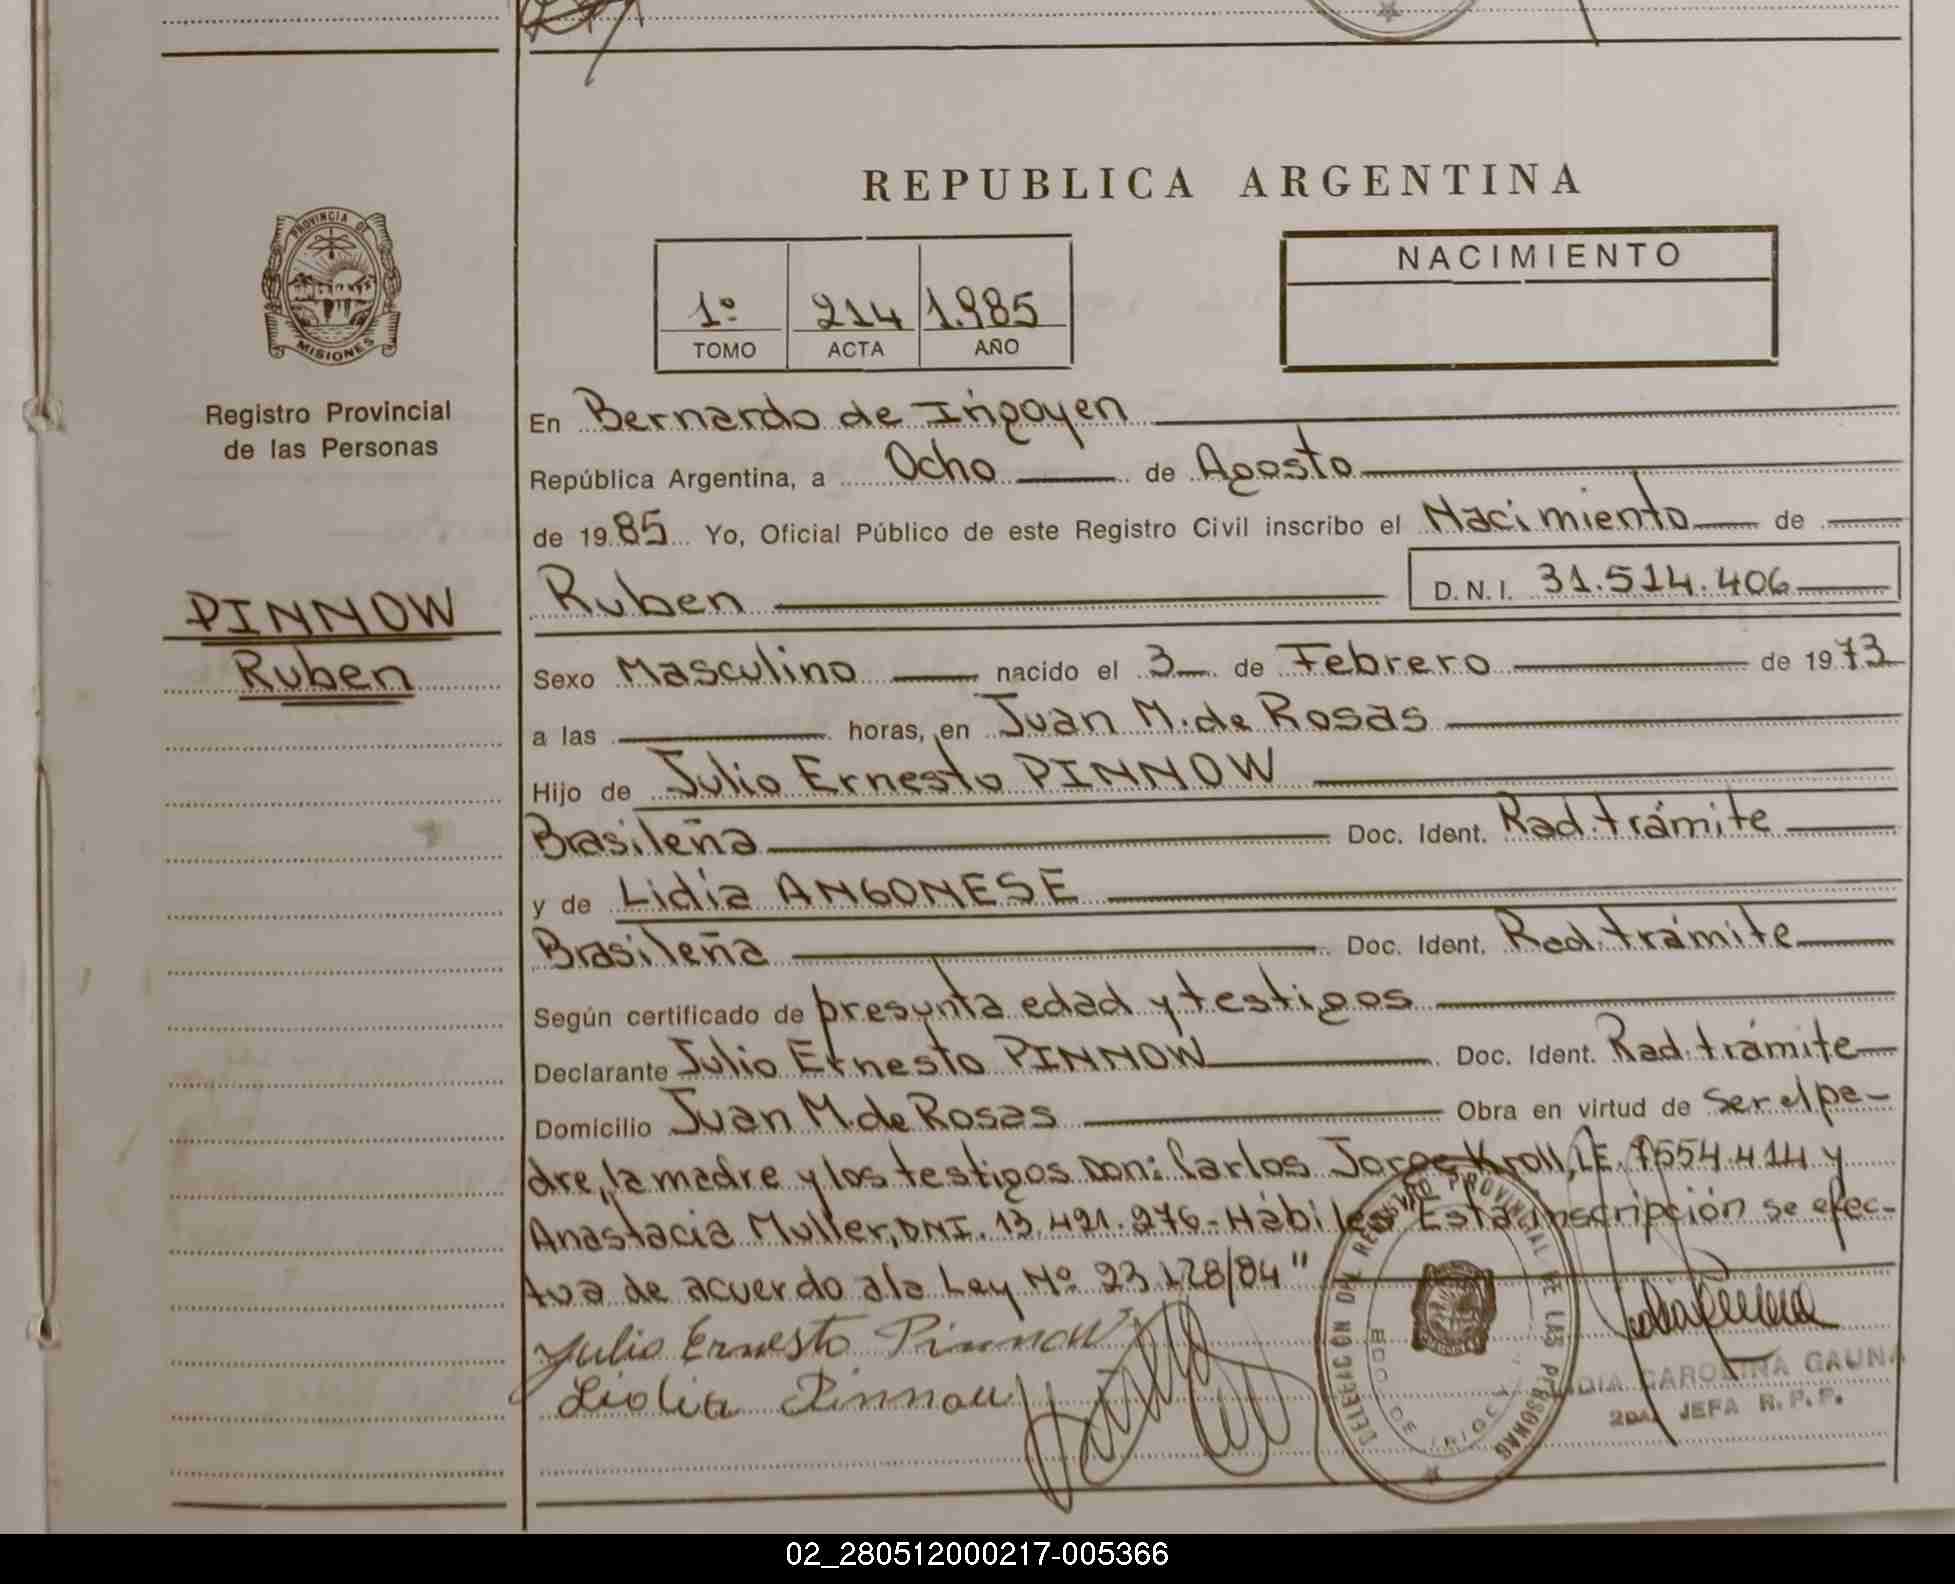 REPUBLICA ARGENTINA
PROVINCIA DE
MISIONES
Registro Provincial
de las Personas
1º 214 1.985
TOMO ACTA AÑO
NACIMIENTO
En Bernardo de Irigoyen
República Argentina, a Ocho de Agosto
de 1985 Yo, Oficial Público de este Registro Civil inscribo el Nacimiento de
Ruben D.N.I. 31.514.406
PINNOW
Ruben
Sexo Masculino nacido el 3 de Febrero de 1973
a las horas, en Juan M. de Rosas
Hijo de Julio Ernesto PINNOW
Brasileña Doc. Ident. Rad. trámite
y de Lidia ANGONESE
Brasileña Doc. Ident. Rad. trámite
Según certificado de presunta edad y testigos
Declarante Julio Ernesto PINNOW Doc. Ident. Rad. trámite
Domicilio Juan M. de Rosas Obra en virtud de ser el pa-
dre, la madre y los testigos Don: Carlos Jorge Kroll, LE. 7554.414 y
Anastacia Muller, DNI. 13.421.276.- Hábiles "Esta inscripción se efec-
tua de acuerdo a la Ley Nº 23.128/84"
Julio Ernesto Pinnow
Lidia Pinnow
DELEGACION DEL REGISTRO PROVINCIAL DE LAS PERSONAS
BDO. DE IRIGOY
LIDIA CAROLINA GAUNA
2DA. JEFA R.P.P.
02_280512000217-005366